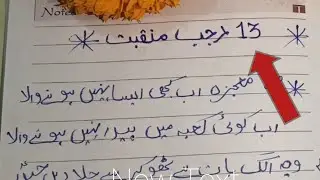 Notes
1
13 رجب منقبت
معجزہ اب کبھی ایسا نہیں ہونے والا
اب کوئی کعبہ میں پیدا نہیں ہونے والا
وہ الگ بات ہے
Now Text